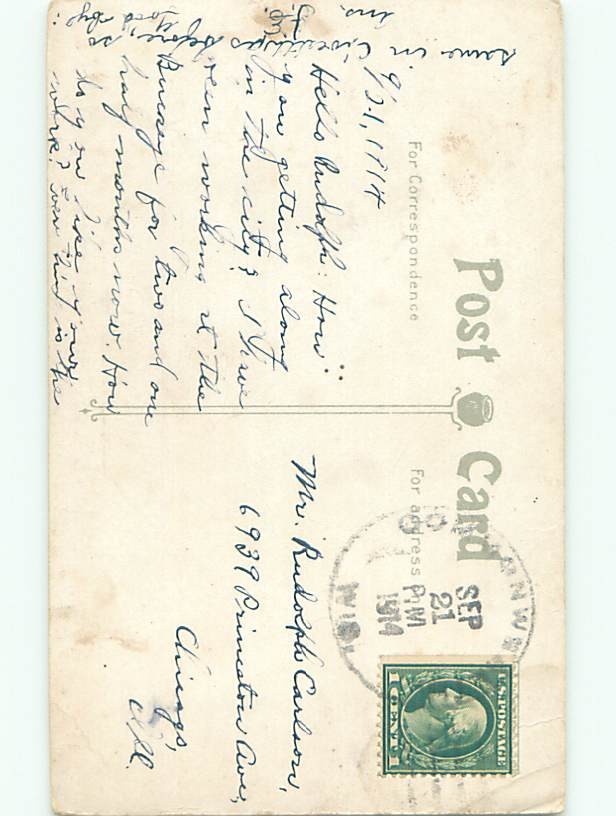 Post Card
For Correspondence
For address only
9/21, 1914
Hello Rudolph: How
you getting along
in the city? I have
been working at the
for two and one
half months now. How
do you like your
work?
is the
same in
before, so
Good bye:
SEP
21
PM
1914
WIS
U.S. POSTAGE
1 CENT 1
Mr. Rudolph Carlson,
6939 Princeton Ave,
Chicago,
Ill.